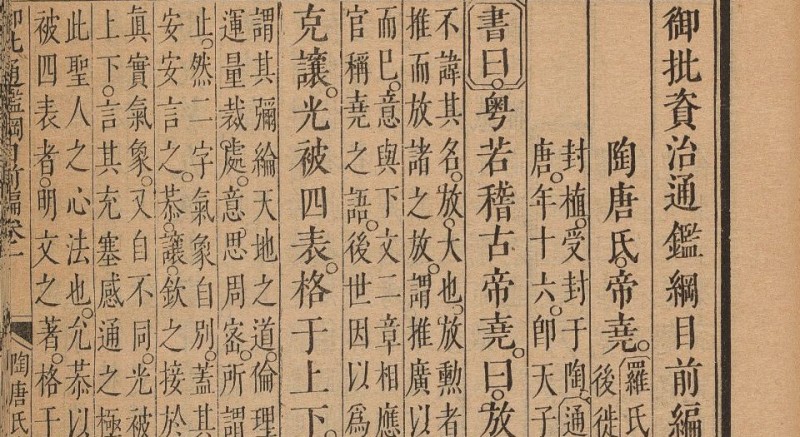 御批資治通鑑綱目前編
陶唐氏。帝堯。
羅氏
後徙
封植。受封于陶。通
唐。年十六。卽天子
書曰。粵若稽古帝堯。曰。放
不諱其名。放。大也。放勳者
推而放諸之放。謂推廣以
而已。意與下文二章相應
官稱堯之語。後世因以爲
克讓。光被四表。格于上下。
謂其彌綸天地之道。倫理
運量裁處。意思周密。所謂
止。然二字氣象自別。蓋其
安安言之。恭讓。欽之接於
眞實氣象。又自不同。光被
上下。言其充塞感通之極
此聖人之心法也。允恭以
被四表者。明文之著。格于
御批通鑑綱目前編卷一
陶唐氏